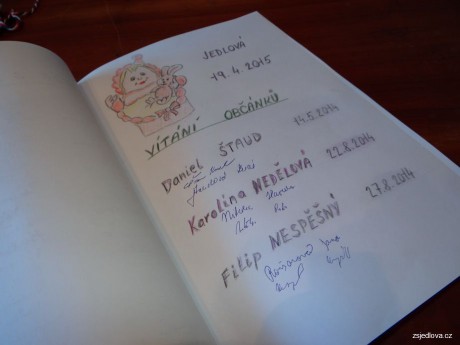 JEDLOVÁ
19.4.2015
VÍTÁNÍ OBČÁNKŮ
Daniel ŠTAUD 14.5.2014
Karolina NEDĚLOVÁ 22.8.2014
Filip NESPĚŠNÝ 27.8.2014
zsjedlova.cz